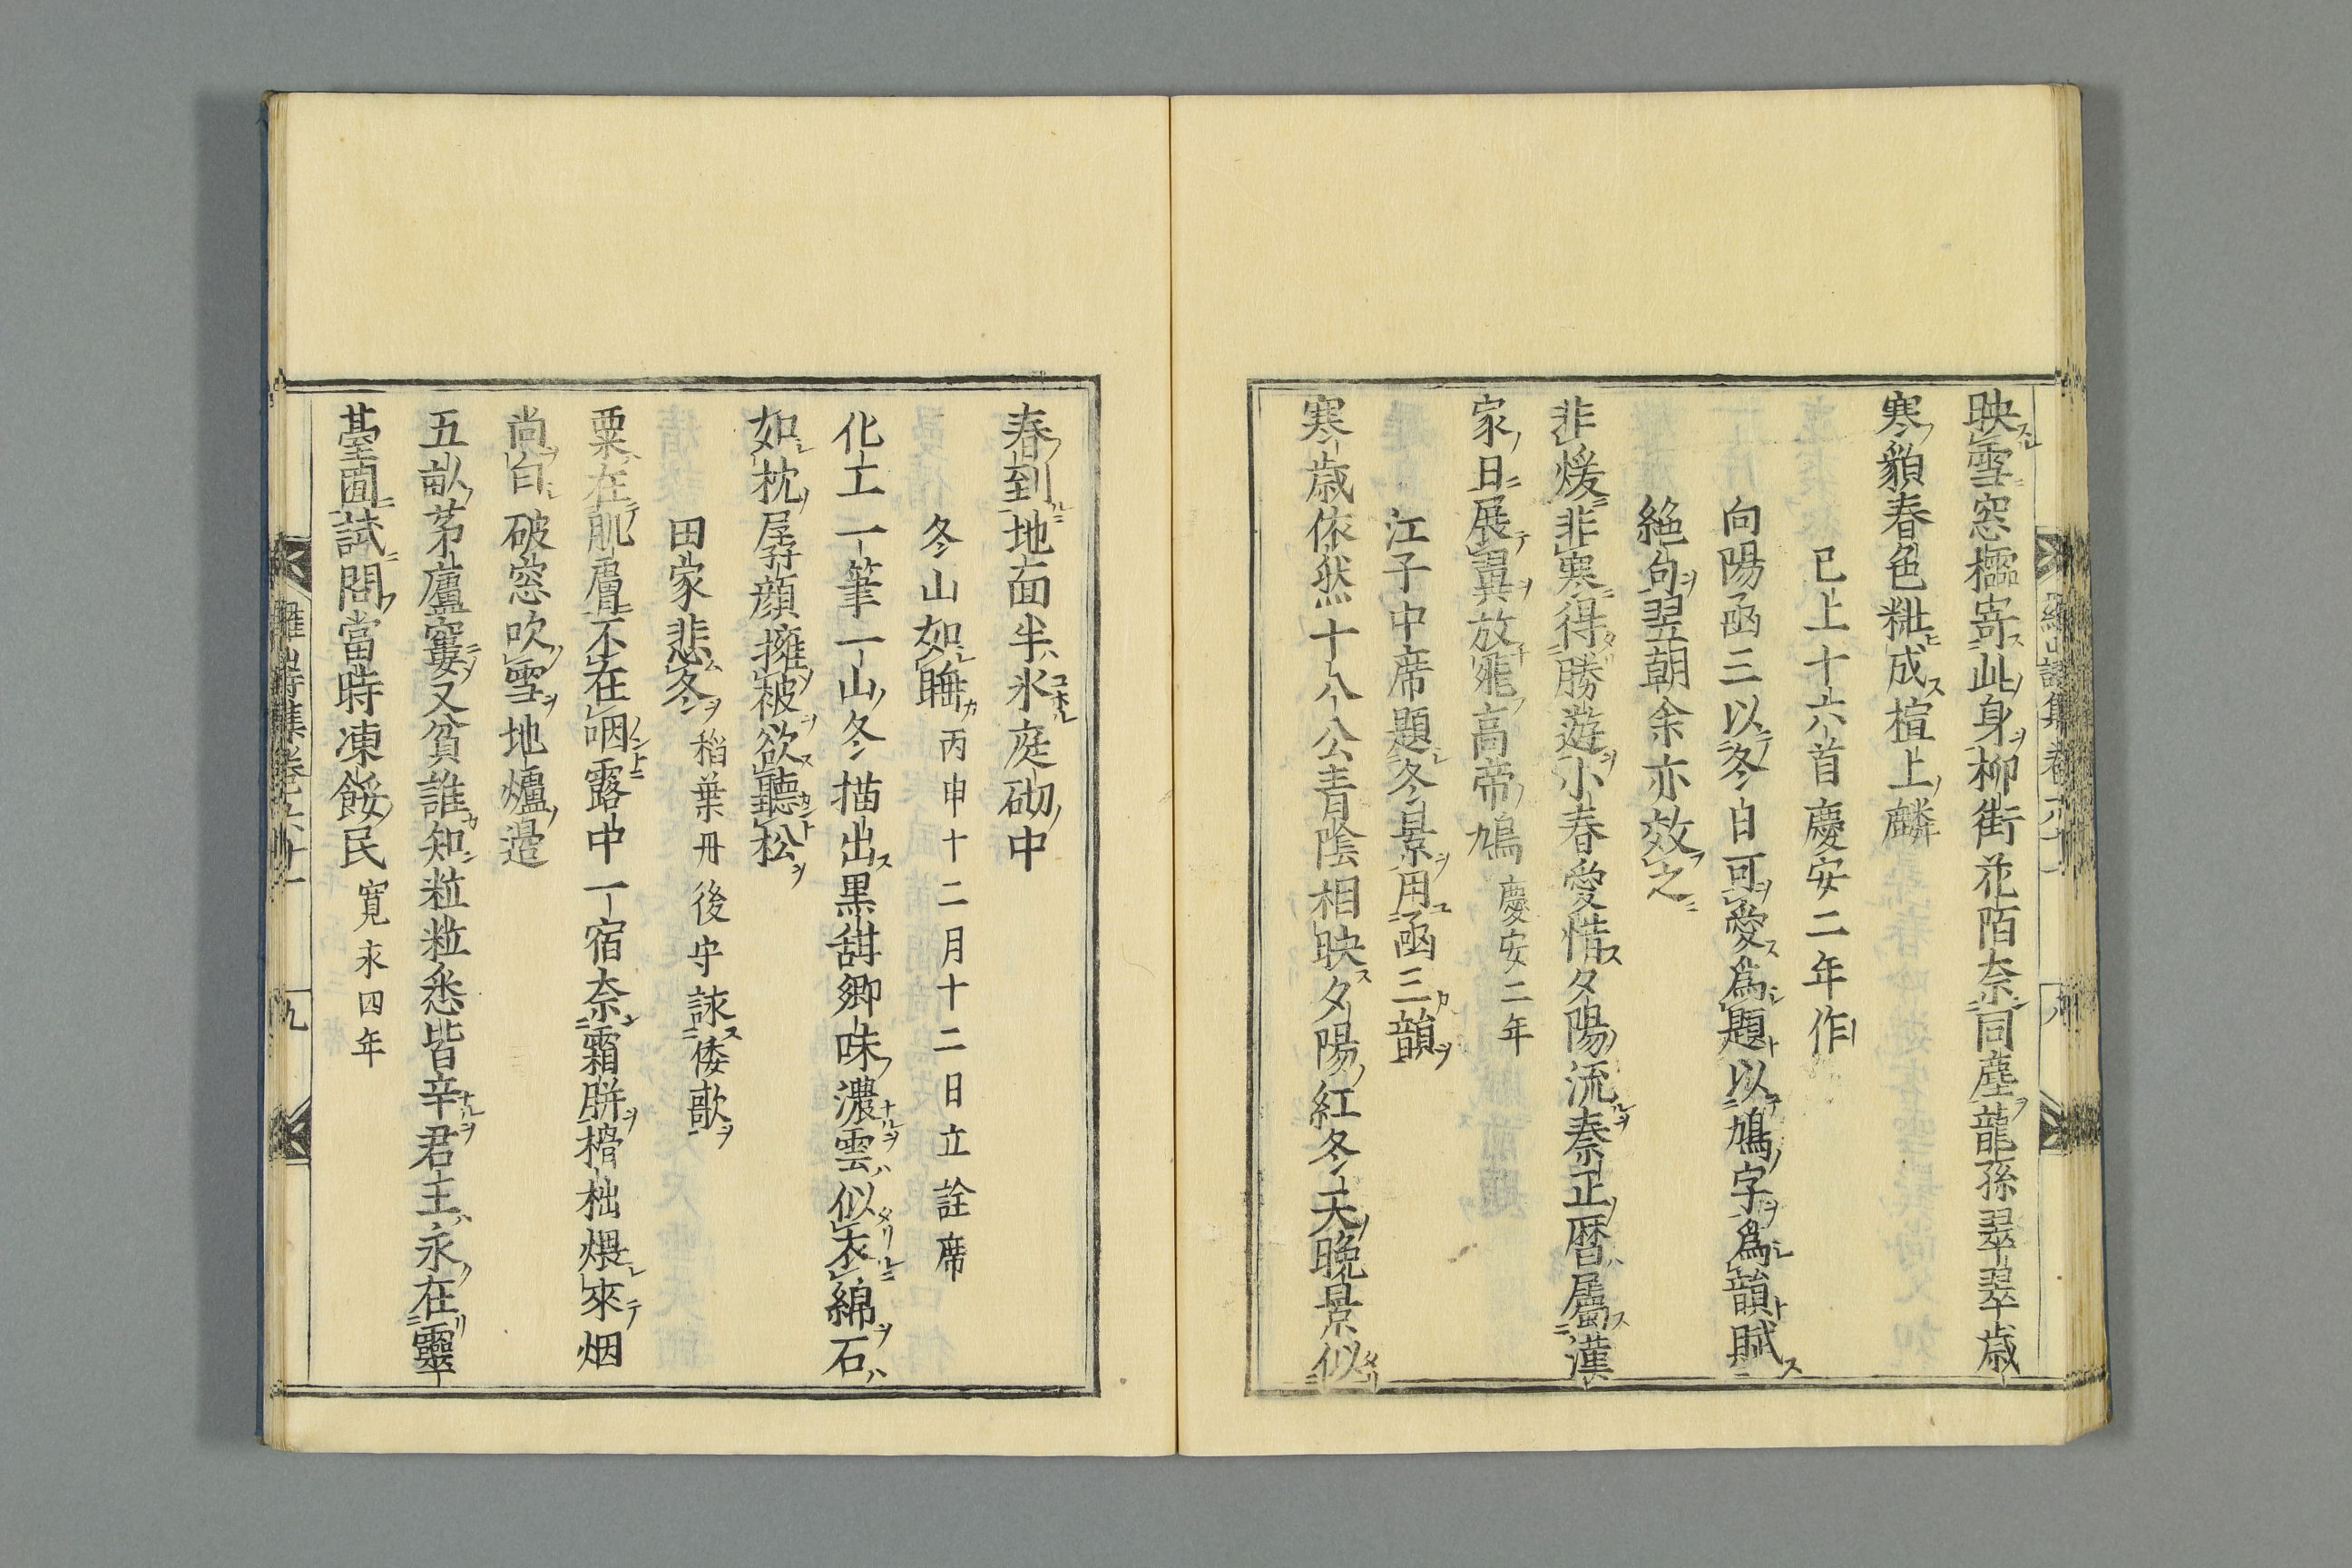 映雪窓櫺寄此身柳街花陌奈同塵龍孫翠翠歳
寒貌春色糚成楦上麟
已上十六首慶安二年作
向陽函三以冬日可愛爲題以鳩字爲韻賦
絶句翌朝余亦效之
非煖非寒得勝遊小春愛惜夕陽流秦正暦屬漢
家日展翼放雍高帝鳩 慶安二年
江子中席題冬景用函三韻
寒歳依然十八公青陰相映夕陽紅冬天晩景似
春到地面半氷庭砌中
冬山如睡 丙申十二月十二日立詮席
化工一筆一山冬描出黒甜郷味濃雲似衣綿石
如枕孱顔擁被欲聽松
田家悲冬 稻葉丹後守詠倭歌
粟在肌膚不在咽露中一宿奈霜胼榾柮煨來烟
尚白破窓吹雪地爐邊
五畝茅廬窶又貧誰知粒粒悉皆辛君王永在靈
臺囿試問當時凍餒民 寛永四年
羅山詩集卷六十一
九